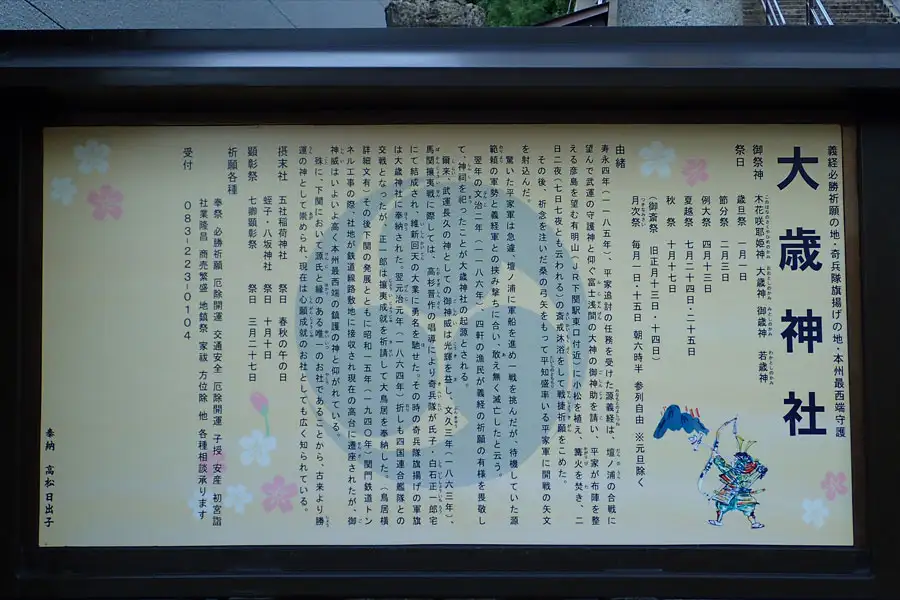 義経必勝祈願の地・奇兵隊旗揚げの地・本州最西端守護
大歳神社
御祭神 木花咲耶姫神 大歳神 御歳神 若歳神
祭日 歳旦祭 一月一日
節分祭 二月三日
例大祭 四月十三日
夏越祭 七月二十四日・二十五日
秋祭 十月十七日
(御斎祭 旧正月十三日・十四日)
月次祭 毎月一日・十五日 朝六時半 参列自由 ※元旦除く
由緒
寿永四年(一一八五年)、平家追討の任務を受けた源義経は、壇ノ浦の合戦に
望んで武運の守護神と仰ぐ富士浅間の大神の御神助を請い、平家が布陣を整
える彦島を望む有明山(JR下関駅東口付近)に小松を植え、篝火を焚き、二
日二夜(七日七夜とも云われる)の斎戒沐浴をし戦捷祈願をこめた。
その後、祈念を注いだ桑の弓矢をもって平知盛率いる平家軍に開戦の矢文
を射込んだ。
驚いた平家軍は急遽、壇ノ浦に軍船を進め一戦を挑んだが、待機していた源
範頼の軍勢と義経軍との挟み撃ちに合い、敢え無く滅亡したと云う。
翌年の文治二年(一一八六年)、四軒の漁民が義経の祈願の有様を畏敬し
て、神祠を祀ったことが大歳神社の起源とされる。
爾来、武運長久の神としての御神威は光輝を益し、文久三年(一八六三年)、
馬関攘夷戦に際しては、高杉晋作の唱導により奇兵隊が氏子・白石正一郎宅
にて結成され、維新回天の大業に勇名を馳せた。その時の奇兵隊旗揚げの軍旗
は大歳神社に奉納された。翌元治元年(一八六四年)折しも四国連合艦隊との
交戦となったが、正一郎は攘夷成就を祈請して大鳥居を奉納した。(鳥居横
詳細文有)その後下関の発展とともに昭和一五年(一九四〇年)関門鉄道トン
ネル工事の際、社地が鉄道線路敷地に接収され現在の高台に遷座されたが、御
神威はいよいよ高く本州最西端の鎮護の神と仰がれている。
殊に、下関において源氏と縁のある唯一のお社であることから、古来より勝
運の神として崇められ、現在は心願成就のお社としても広く知られている。
摂末社 五社稲荷神社 祭日 春秋の午の日
蛭子・八坂神社 祭日 十月十日
顕彰祭 七卿顕彰祭 祭日 三月二十七日
祈願各種
奉祭 必勝祈願 厄除開運 交通安全 厄除開運 子授 安産 初宮詣
社業隆昌 商売繁盛 地鎮祭 家祓 方位除 他 各種相談承ります
受付 083-223-0104
奉納 高松日出子